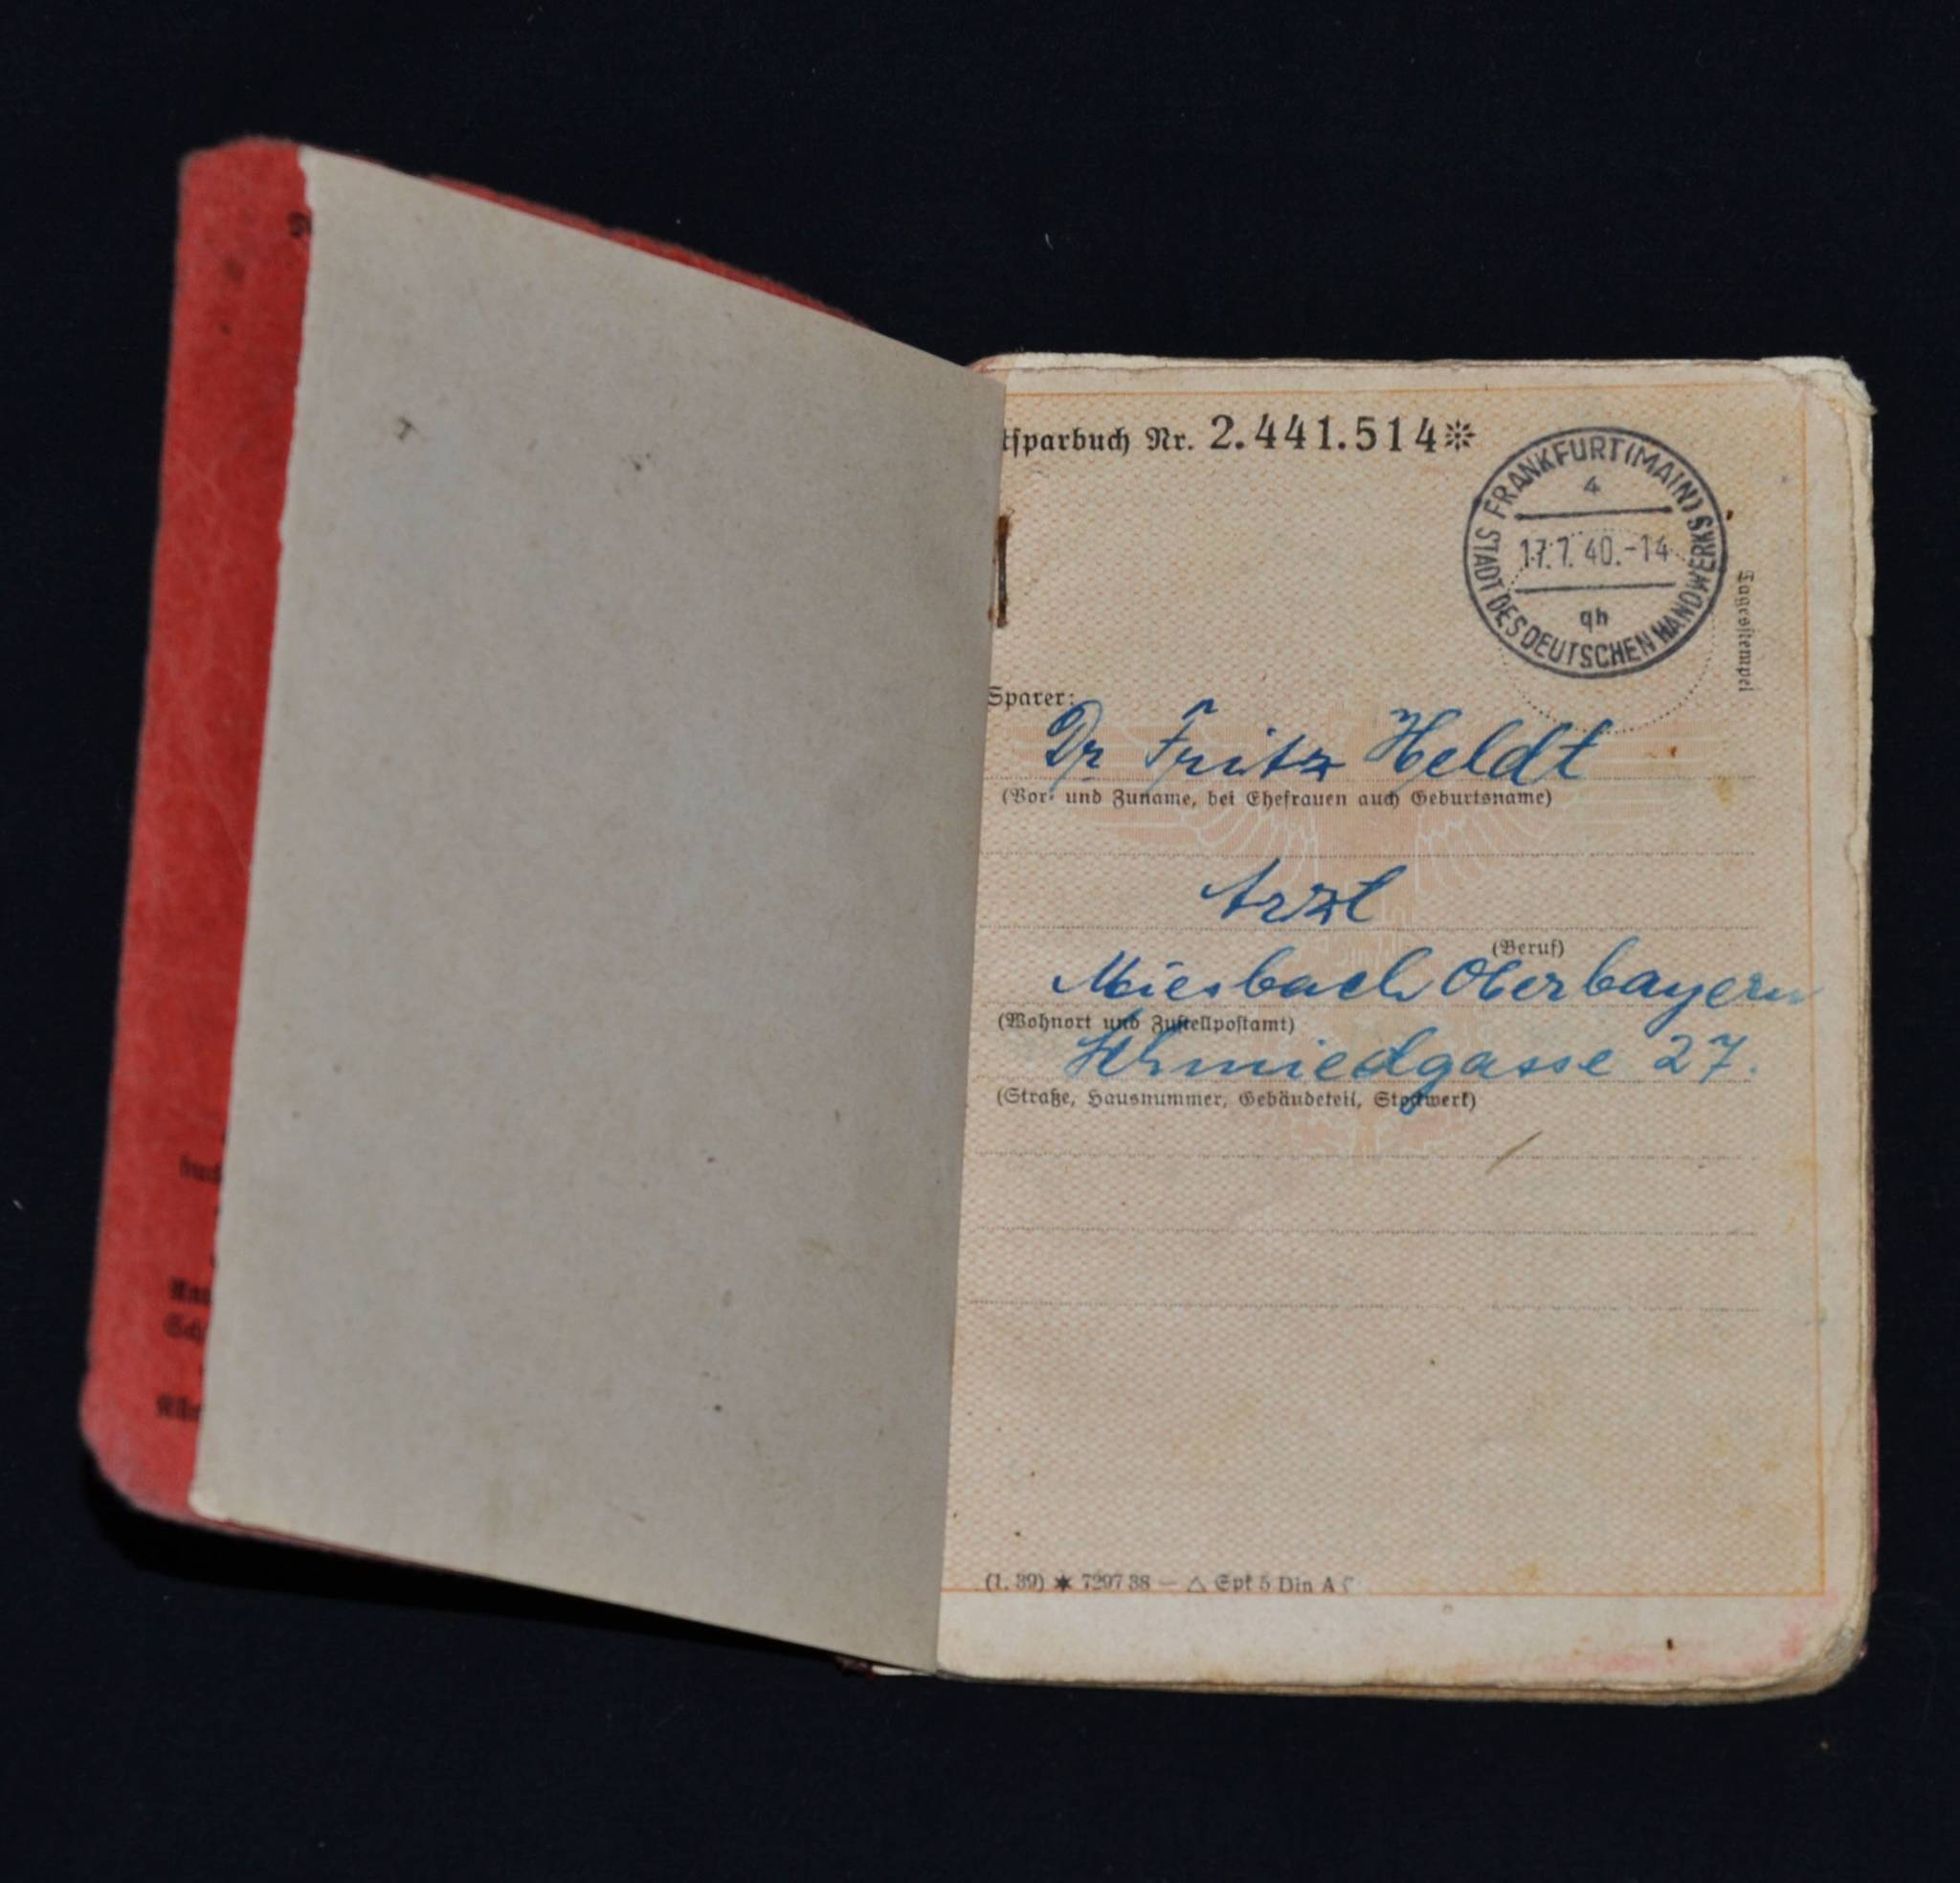 tsparbuch Nr. 2.441.514*
FRANKFURT (MAIN) STADT DES DEUTSCHEN HANDWERKS
4
17.7.40.-14
qh
Tagesstempel
Sparer:
Dr Fritz Heldt
(Vor- und Zuname, bei Ehefrauen auch Geburtsname)
Arzt
(Beruf)
Miesbach Oberbayern
(Wohnort und Zustellpostamt)
Schmiedgasse 27.
(Straße, Hausnummer, Gebäudeteil, Stockwerk)
(1. 39) ✶ 7297 38 — △ Spk 5 Din A